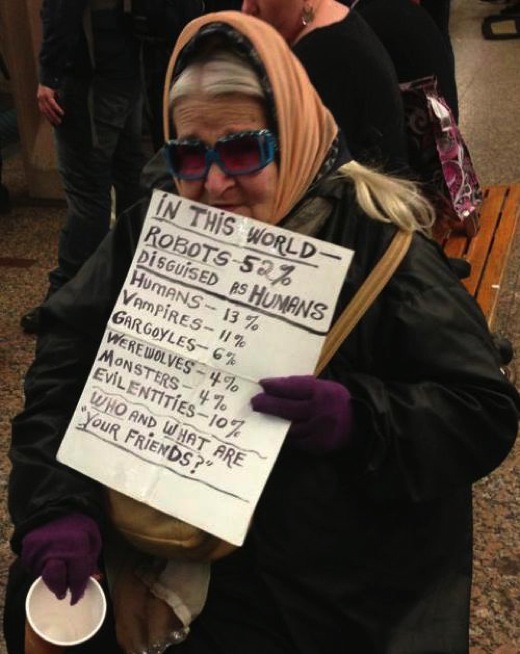 iN THIS WORLD—
ROBOTS-52%
DISGUISED AS HUMANS
HUMANS— 13%
VAMPIRES— 11%
GARGOYLES— 6%
WEREWOLVES-4%
MONSTERS - 4%
EVIL ENTITIES—10%
WHO AND WHAT ARE
"YOUR FRIENDS?"